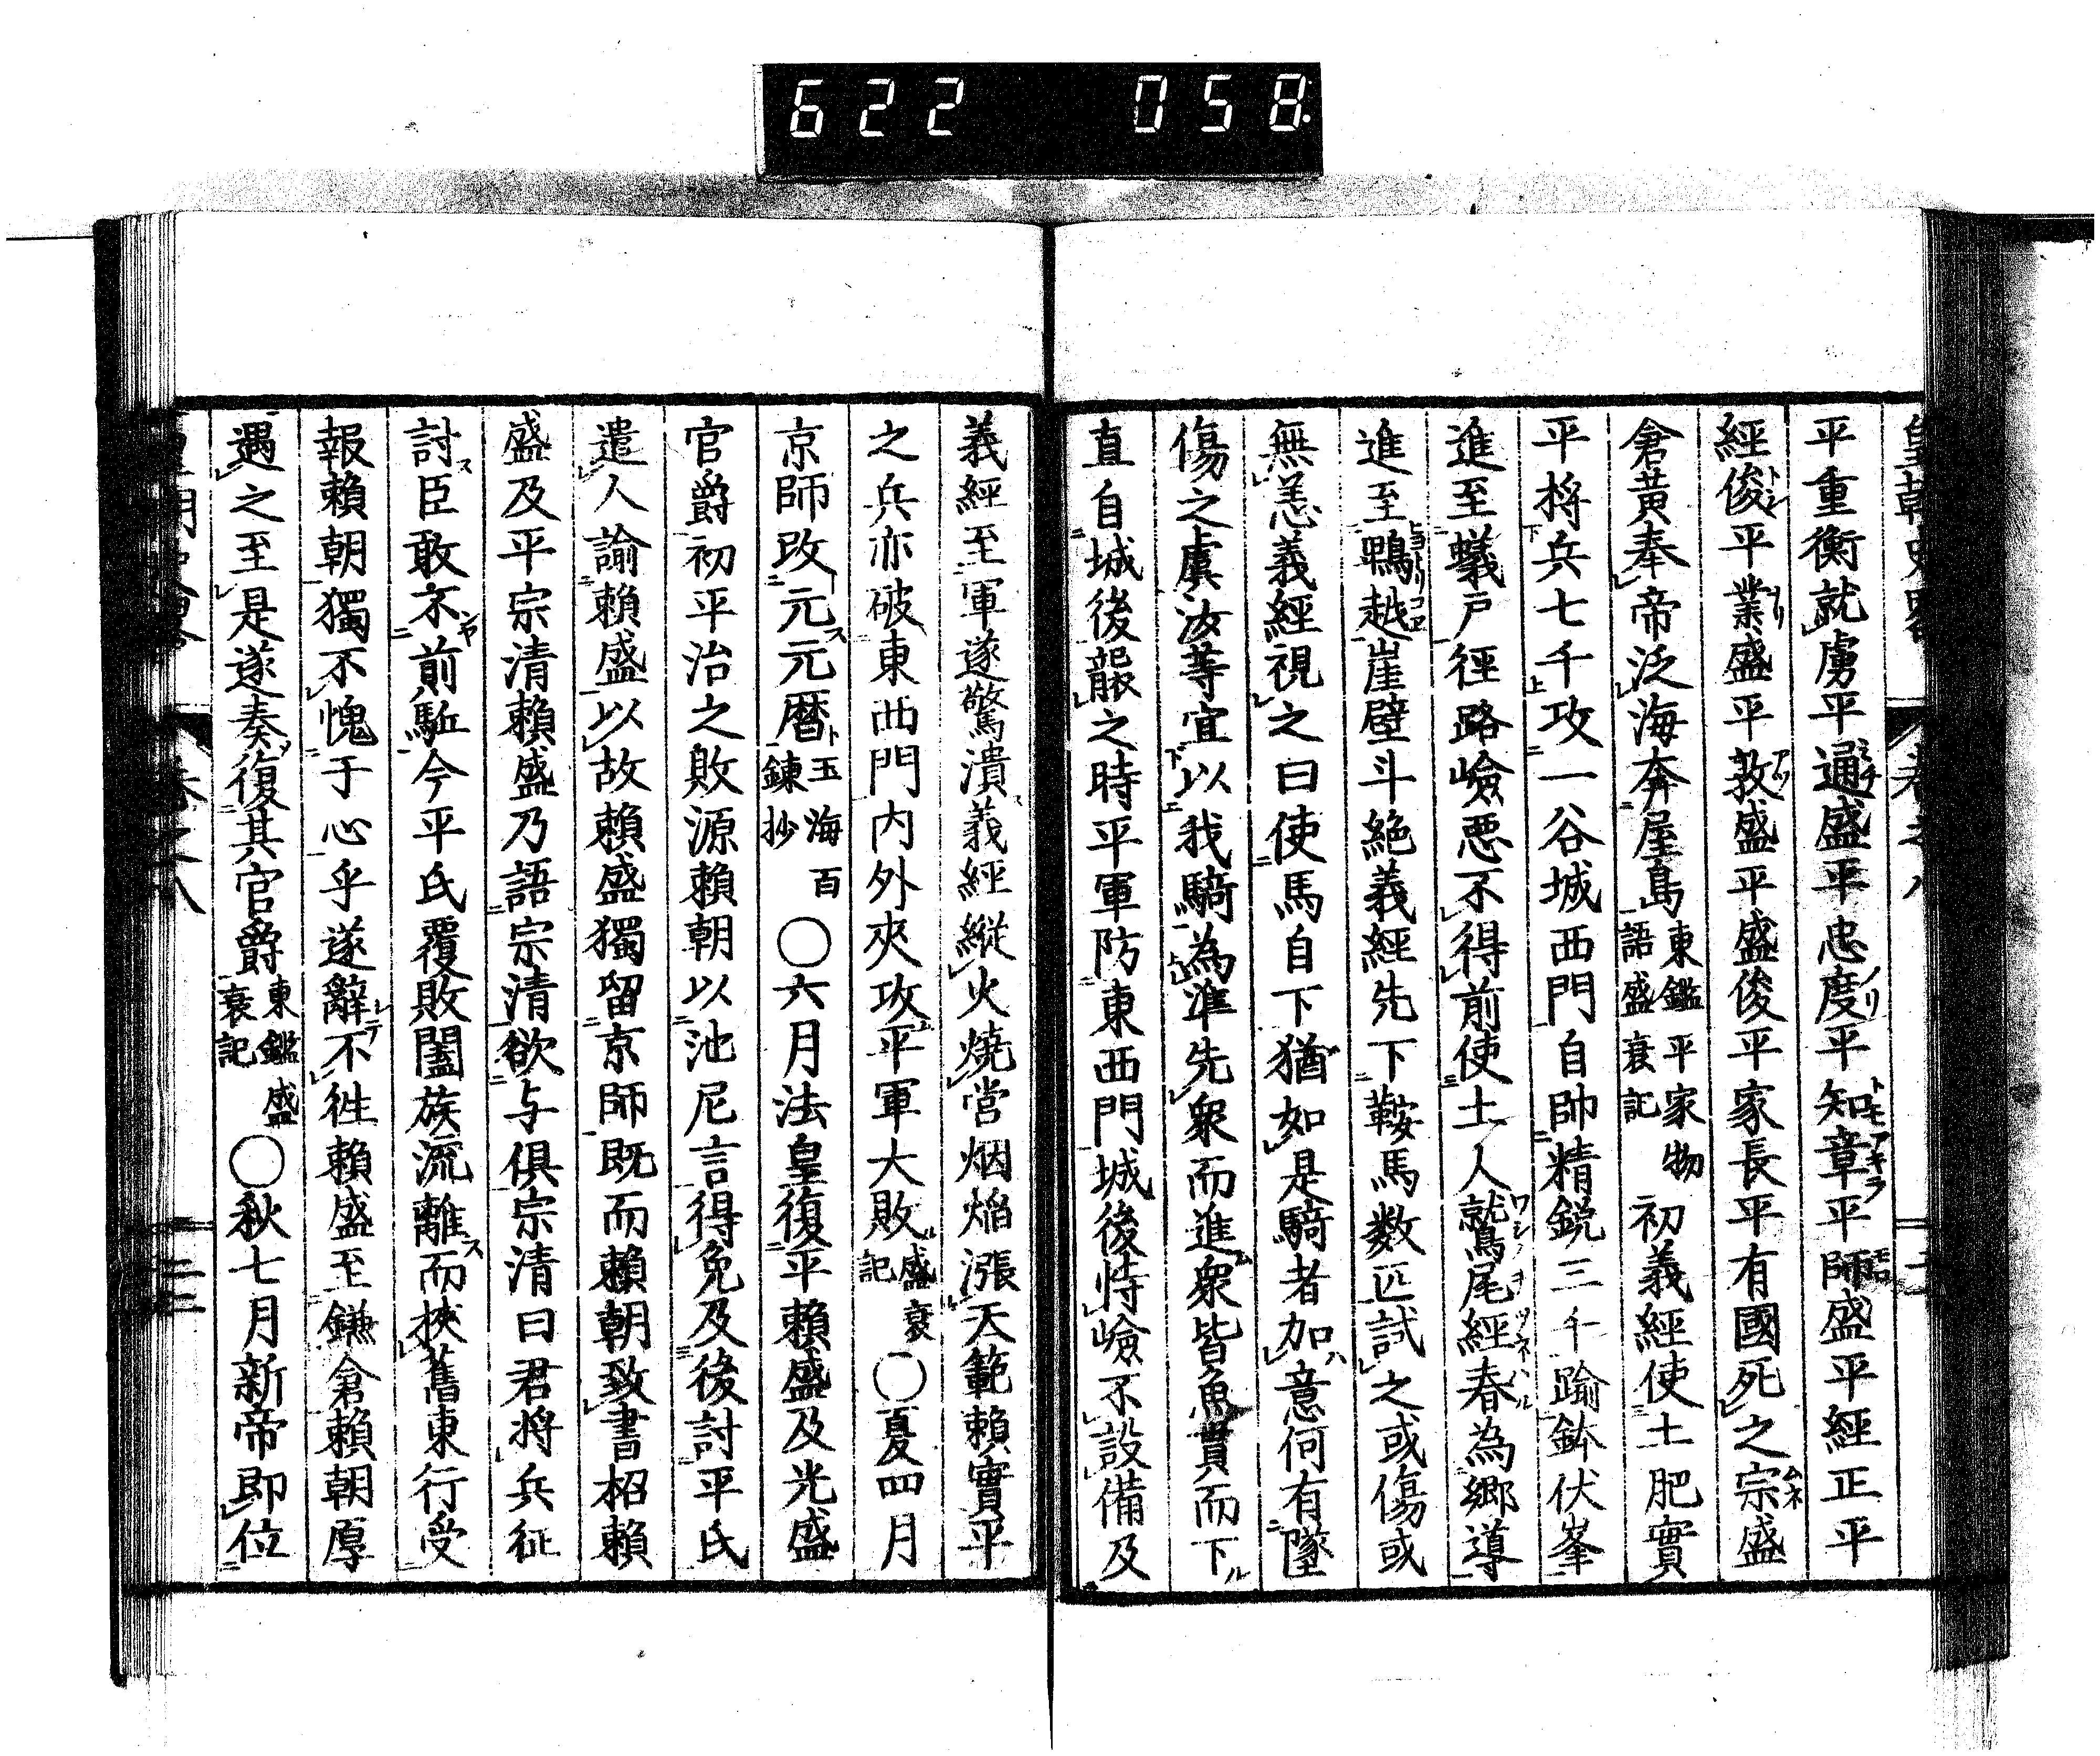 622 058
平重衡就虜平通盛平忠度平知章平師盛平經正平
經俊平業盛平敎盛平盛俊平家長平有國死之宗盛
倉黃奉帝泛海奔屋島東鑑平家物語盛衰記初義經使土肥實
平將兵七千攻一谷城西門自帥精銳三千踰鉢伏峯
進至蟻戶徑路嶮惡不得前使土人鷲尾經春為鄉導
進至鵯越崖壁斗絕義經先下鞍馬数匹試之或傷或
無恙義經視之曰使馬自下猶如是騎者加意何有墜
傷之虞汝等宜以我騎為準先衆而進衆皆魚貫而下
直自城後襲之時平軍防東西門城後恃嶮不設備及
義經至軍遂驚潰義經縱火燒營烟焰漲天範賴實平
之兵亦破東西門內外夾攻平軍大敗盛衰記○夏四月
京師改元元曆玉海百鍊抄○六月法皇復平賴盛及光盛
官爵初平治之敗源賴朝以池尼言得免及後討平氏
遣人諭賴盛以故賴盛獨留京師既而賴朝致書招賴
盛及平宗清賴盛乃語宗清欲与俱宗清曰君將兵征
討臣敢不前駈今平氏覆敗闔族流離而挾舊東行受
報賴朝獨不愧于心乎遂辭不徃賴盛至鎌倉賴朝厚
遇之至是遂奏復其官爵東鑑盛衰記○秋七月新帝即位